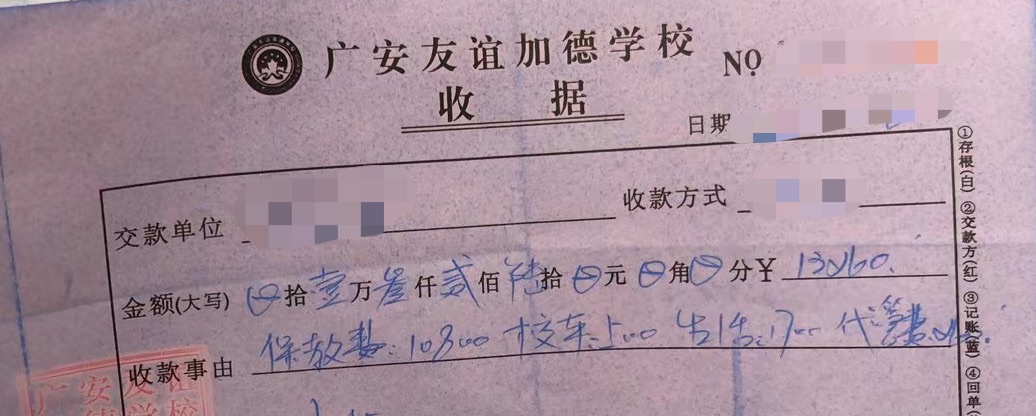 广安友谊加德学校
收 据
NO
日期
交款单位
收款方式
金额(大写) ⊖拾壹万叁仟贰佰陆拾⊖元⊖角⊖分¥ 13260.
收款事由 保教费:10800 校车:500 生活:1700 代
①存根(白) ②交款方(红) ③记账(蓝) ④回单
广安友谊
德学校